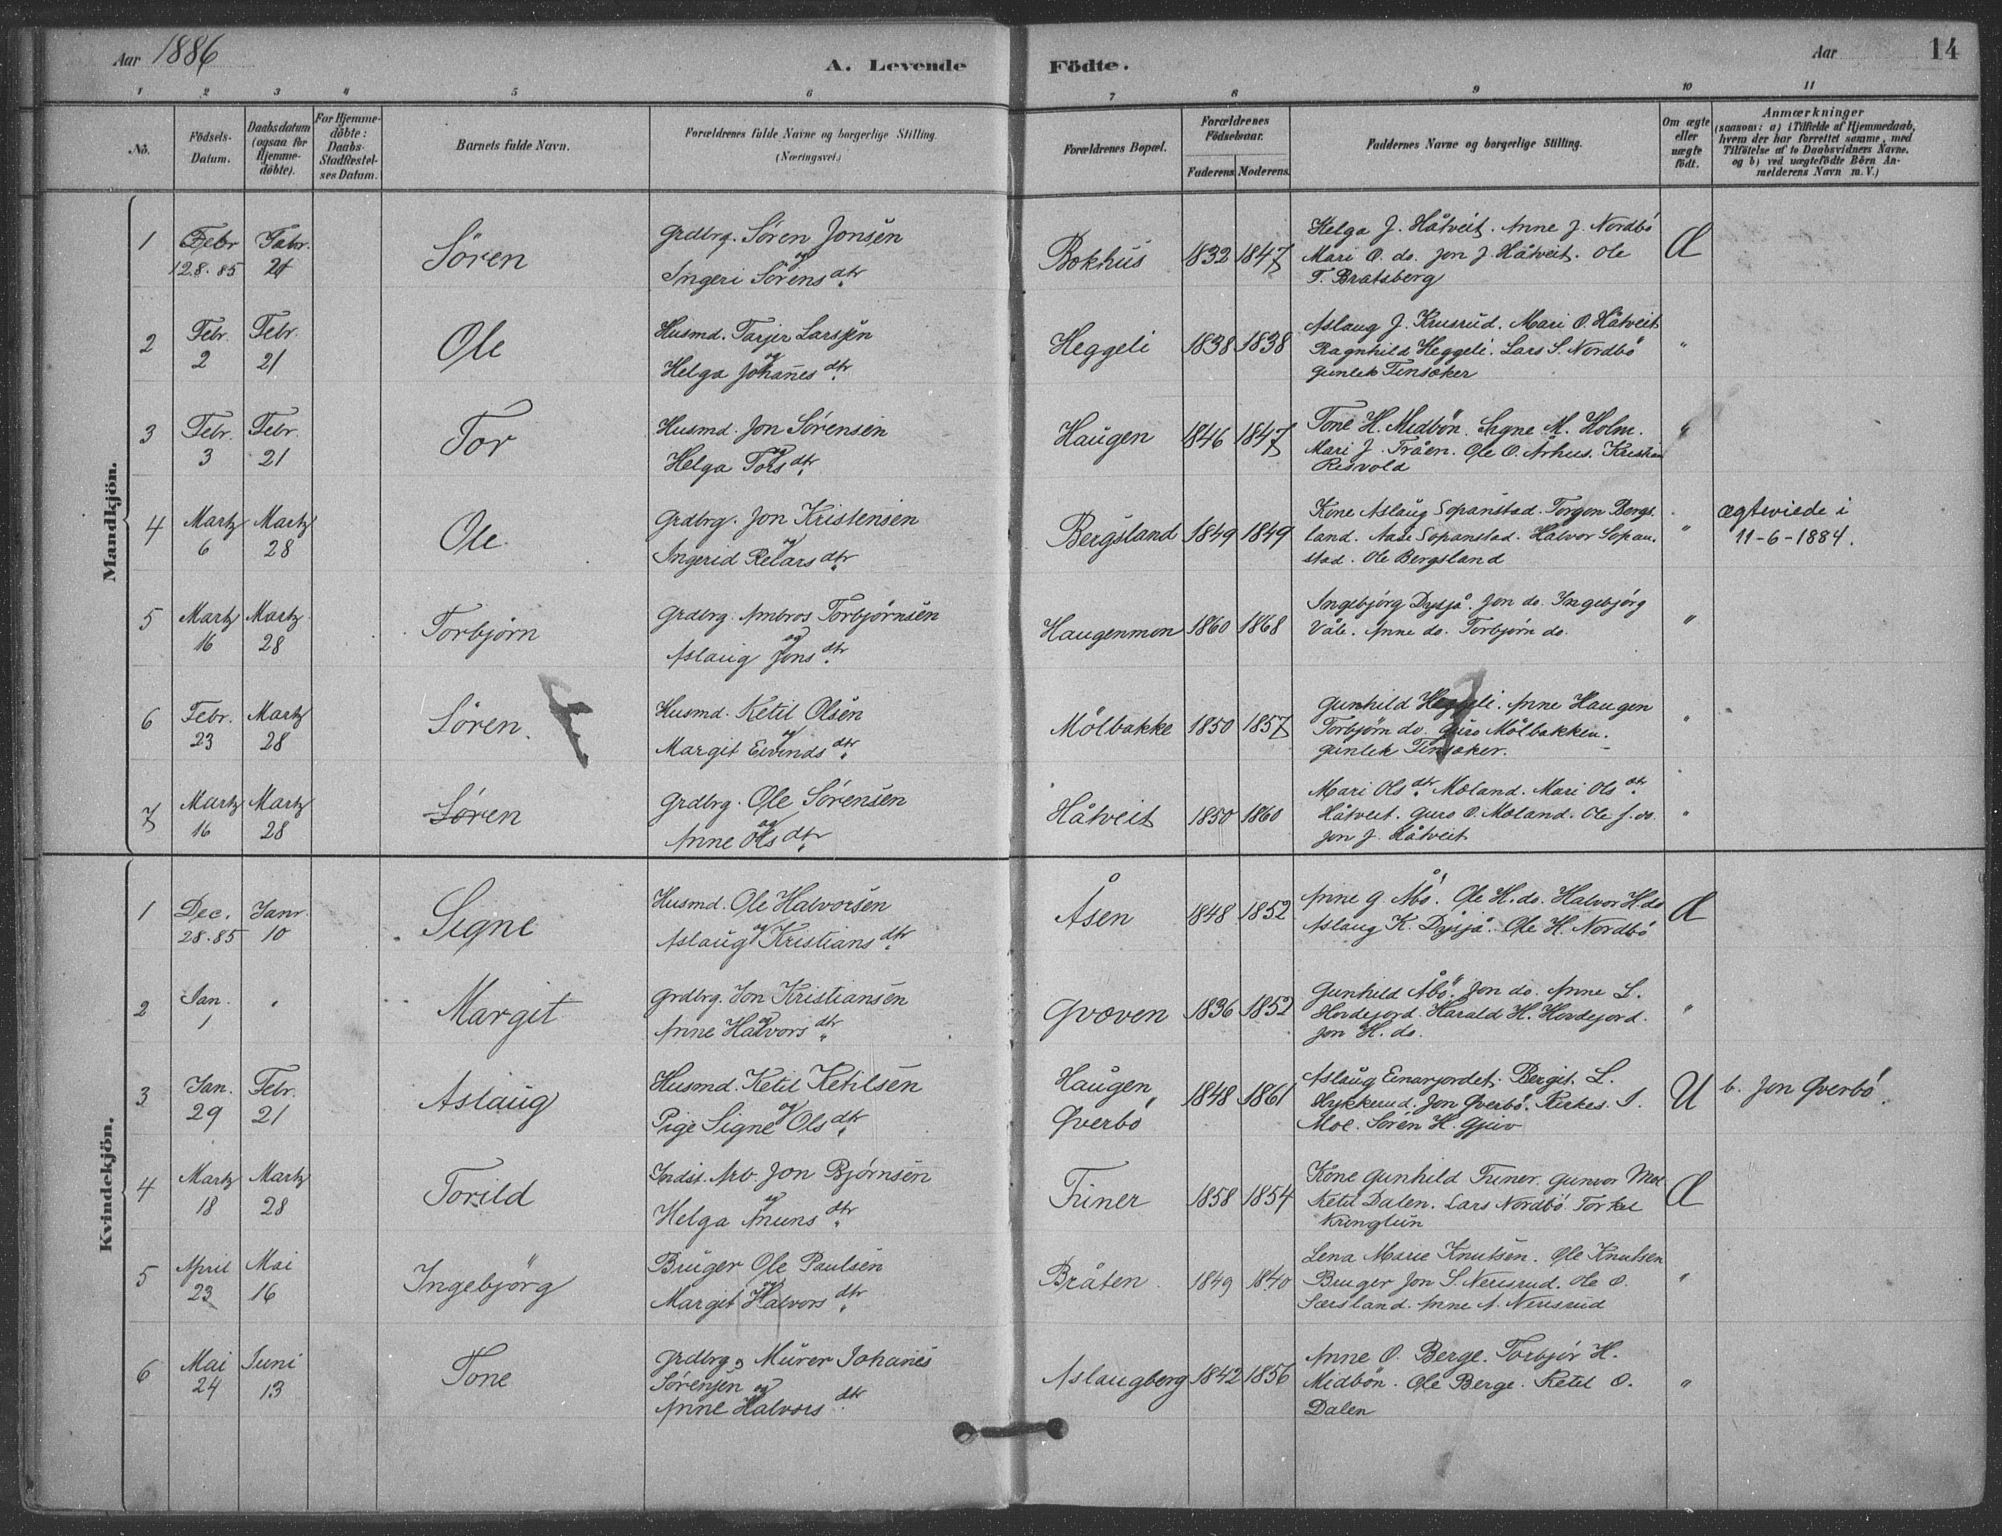 Aar 1886
A. Levende Födte.
Aar 14
1 2 3 4 5 6 7 8 9 10 11
No.
Födsels-Datum.
Daabsdatum (ogsaa for Hjemme-döbte).
For Hjemme-döbte: Daabs-Stadfæstel-ses Datum.
Barnets fulde Navn.
Forældrenes fulde Navne og borgerlige Stilling.
(Næringsvei.)
Forældrenes Bopæl.
Forældrenes Födselsaar.
Faderens Moderens.
Faddernes Navne og borgerlige Stilling.
Om ægte eller uægte födt.
Anmærkninger
(saasom: a) i Tilfælde af Hjemmedaab,
hvem der har forrettet samme, med
Tilföielse af to Daabsvidners Navne.
og b) ved uægtefödte Börn An-
melderens Navn m. V.)
Mandkjön.
1 Febr 12.8.85 Febr. 21 Sören Grdbrg. Sören Jonsen og Ingeri Sörens dtr. Bokhus 1832 1847 Helga J. Håtveit. Anne J. Nordbö
Mari O. do. Jon J. Håtveit. Ole
T. Bratsberg Æ
2 Febr. 2 Febr. 21 Ole Husmd. Tarjer Larssen og Helga Johanes dtr. Heggeli 1838 1838 Aslaug J. Krusrud. Mari O. Håtveit
Ragnhild Heggeli. Lars S. Nordbö
Gunlek Tinsæker "
3 Febr. 3 Febr. 21 Tor Husmd. Jon Sörensen og Helga Tors dtr. Haugen 1846 1847 Tone H. Midbön. Signe M. Holm.
Mari J. Tråen. Ole O. Århus. Kristian
Risvold "
4 Martz 6 Martz 28 Ole. Grdbrg. Jon Kristensen og Ingerid Relars dtr. Bergsland 1849 1849 Kone Aslaug Sopanstad. Torgon Bergs-
land. Aase Sopanstad. Halvor Sopan-
stad. Ole Bergsland " ægteviede i
11-6-1884.
5 Martz 16 Martz 28 Torbjörn Grdbrg. Ambros Torbjörnsen og Aslaug Jons dtr. Haugenmon 1860 1868 Ingebjörg Dysjå. Jon do. Ingebjörg
Våle. Anne do. Torbjörn do. "
6 Febr. 23 Martz 28 Sören. Husmd. Ketil Olsen og Margit Eivinds dtr. Mölbakke 1850 1857 Gunhild Heggeli. Anne Haugen
Torbjörn do. Guro Mölbakken.
Gunlek Tinsæker. "
7 Martz 16 Martz 28 Sören Grdbrg. Ole Sörensen og Anne Ols dtr. Håtveit 1850 1860 Mari Ols dtr. Moland. Mari Ols dtr.
Håtveit. Guro O. Moland. Ole J. do.
Jon J. Håtveit "
Kvindekjön.
1 Dec. 28.85 Janr. 10 Signe Husmd. Ole Halvorsen og Aslaug Kristians dtr. Åsen 1848 1852 Anne G. Åbö. Ole H. do. Halvor H. do
Aslaug K. Dysjå. Ole H. Nordbö Æ
2 Jan. 1 " Margit Grdbrg. Jon Kristiansen og Anne Halvors dtr. Gvæven 1836 1852 Gunhild Åbö. Jon do. Anne L.
Hovdejord. Harald H. Hovdejord.
Jon H. do. "
3 Jan. 29 Febr. 21 Aslaug Husmd. Ketil Ketilsen og Pige Signe Ols dtr. Haugen, Överbö 1848 1861 Aslaug Einarjordet. Bergit L.
Jon Överbö. S.
Moe. Sören H. Gjuv U b. Jon Överbö.
4 Martz 18 Martz 28 Torild Indst. Arb. Jon Björnsen og Helga Amuns dtr. Triner 1858 1854 Kone Gunhild Triner. Gunvor Moe
Ketil Dalen. Lars Nordbö. Torkel
Kringlun Æ
5 April 23 Mai 16 Ingebjörg Bruger Ole Paulsen og Margit Halvors dtr. Bråten. 1849 1840 Lena Marie Knutsen. Ole Knutsen
Bruger Jon S. Nerisrud. Ole O.
Særsland. Anne A. Nerisrud "
6 Mai 24 Juni 13 Tone Grdbrg. & Murer Johanes
Sörensen og Anne Halvors dtr. Aslaugberg 1842 1856 Anne O. Berge. Torbjör H.
Midbön. Ole Berge. Ketil O.
Dalen "